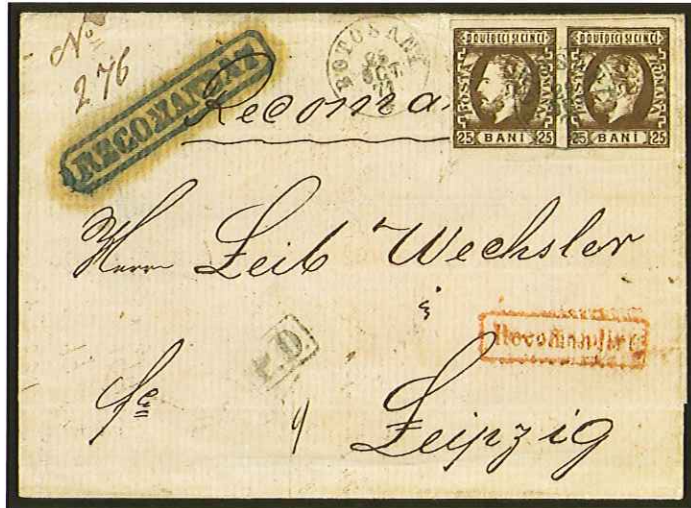 No
276
RECOMANDAT
Recoman
BOTOSANI
OCT.
DOUEDECI SI CINCI
POSTA ROMANA
25 BANI 25
DOUEDECI SI CINCI
POSTA ROMANA
25 BANI 25
Herrn Leib Wechsler
Recomandirt
P.D.
Leipzig